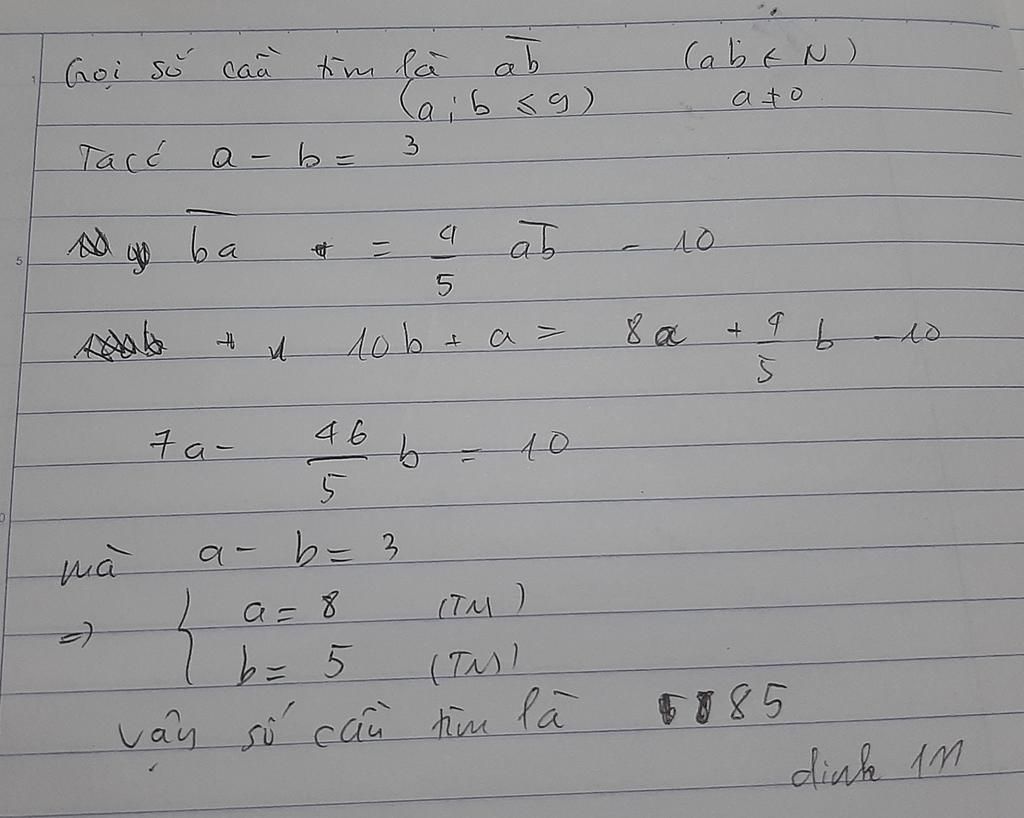 Gọi số cần tìm là a̅b̅ (ab ∈ N)
(a; b ≤ 9) a ≠ 0
Ta có a - b = 3
b̅a̅ = 4/5 a̅b̅ - 10
10b + a = 8a + 4/5 b - 10
7a - 46/5 b = 10
mà a - b = 3
=> { a = 8 (TM)
b = 5 (TM)
Vậy số cần tìm là 85